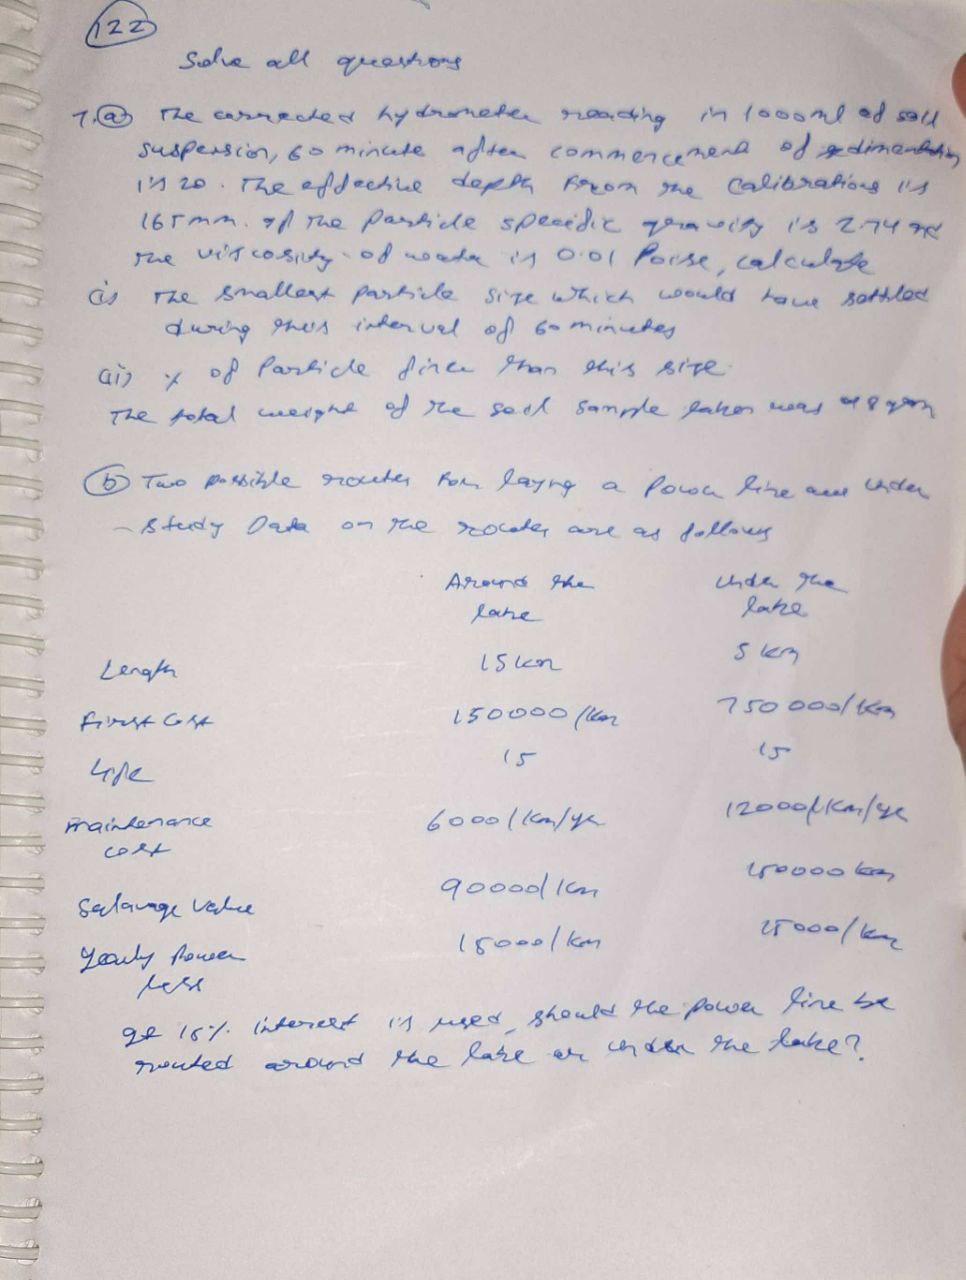 122
Solve all questions
1. (a) The corrected hydrometer reading in 1000ml of soil
suspension, 60 minute after commencement of sedimentation
is 20. The effective depth from the calibrations is
165mm. If the particle specific gravity is 2.74 and
the viscosity of water is 0.01 Poise, calculate
(i) The smallest particle size which would have settled
during this interval of 60 minutes
(ii) % of Particle finer than this size.
The total weight of the soil sample taken was
(b) Two possible routes for laying a power line are under
study Data on the routes are as follows
Around the under the
lake lake
Length 15 km 5 km
First Cost 150000/km 750000/km
Life 15 15
maintenance 6000/km/yr 12000/km/yr
cost
Salavage Value 90000/km 150000 km
Yearly Power 15000/km 15000/km
loss
If 15% interest is used, should the power line be
routed around the lake or under the lake?